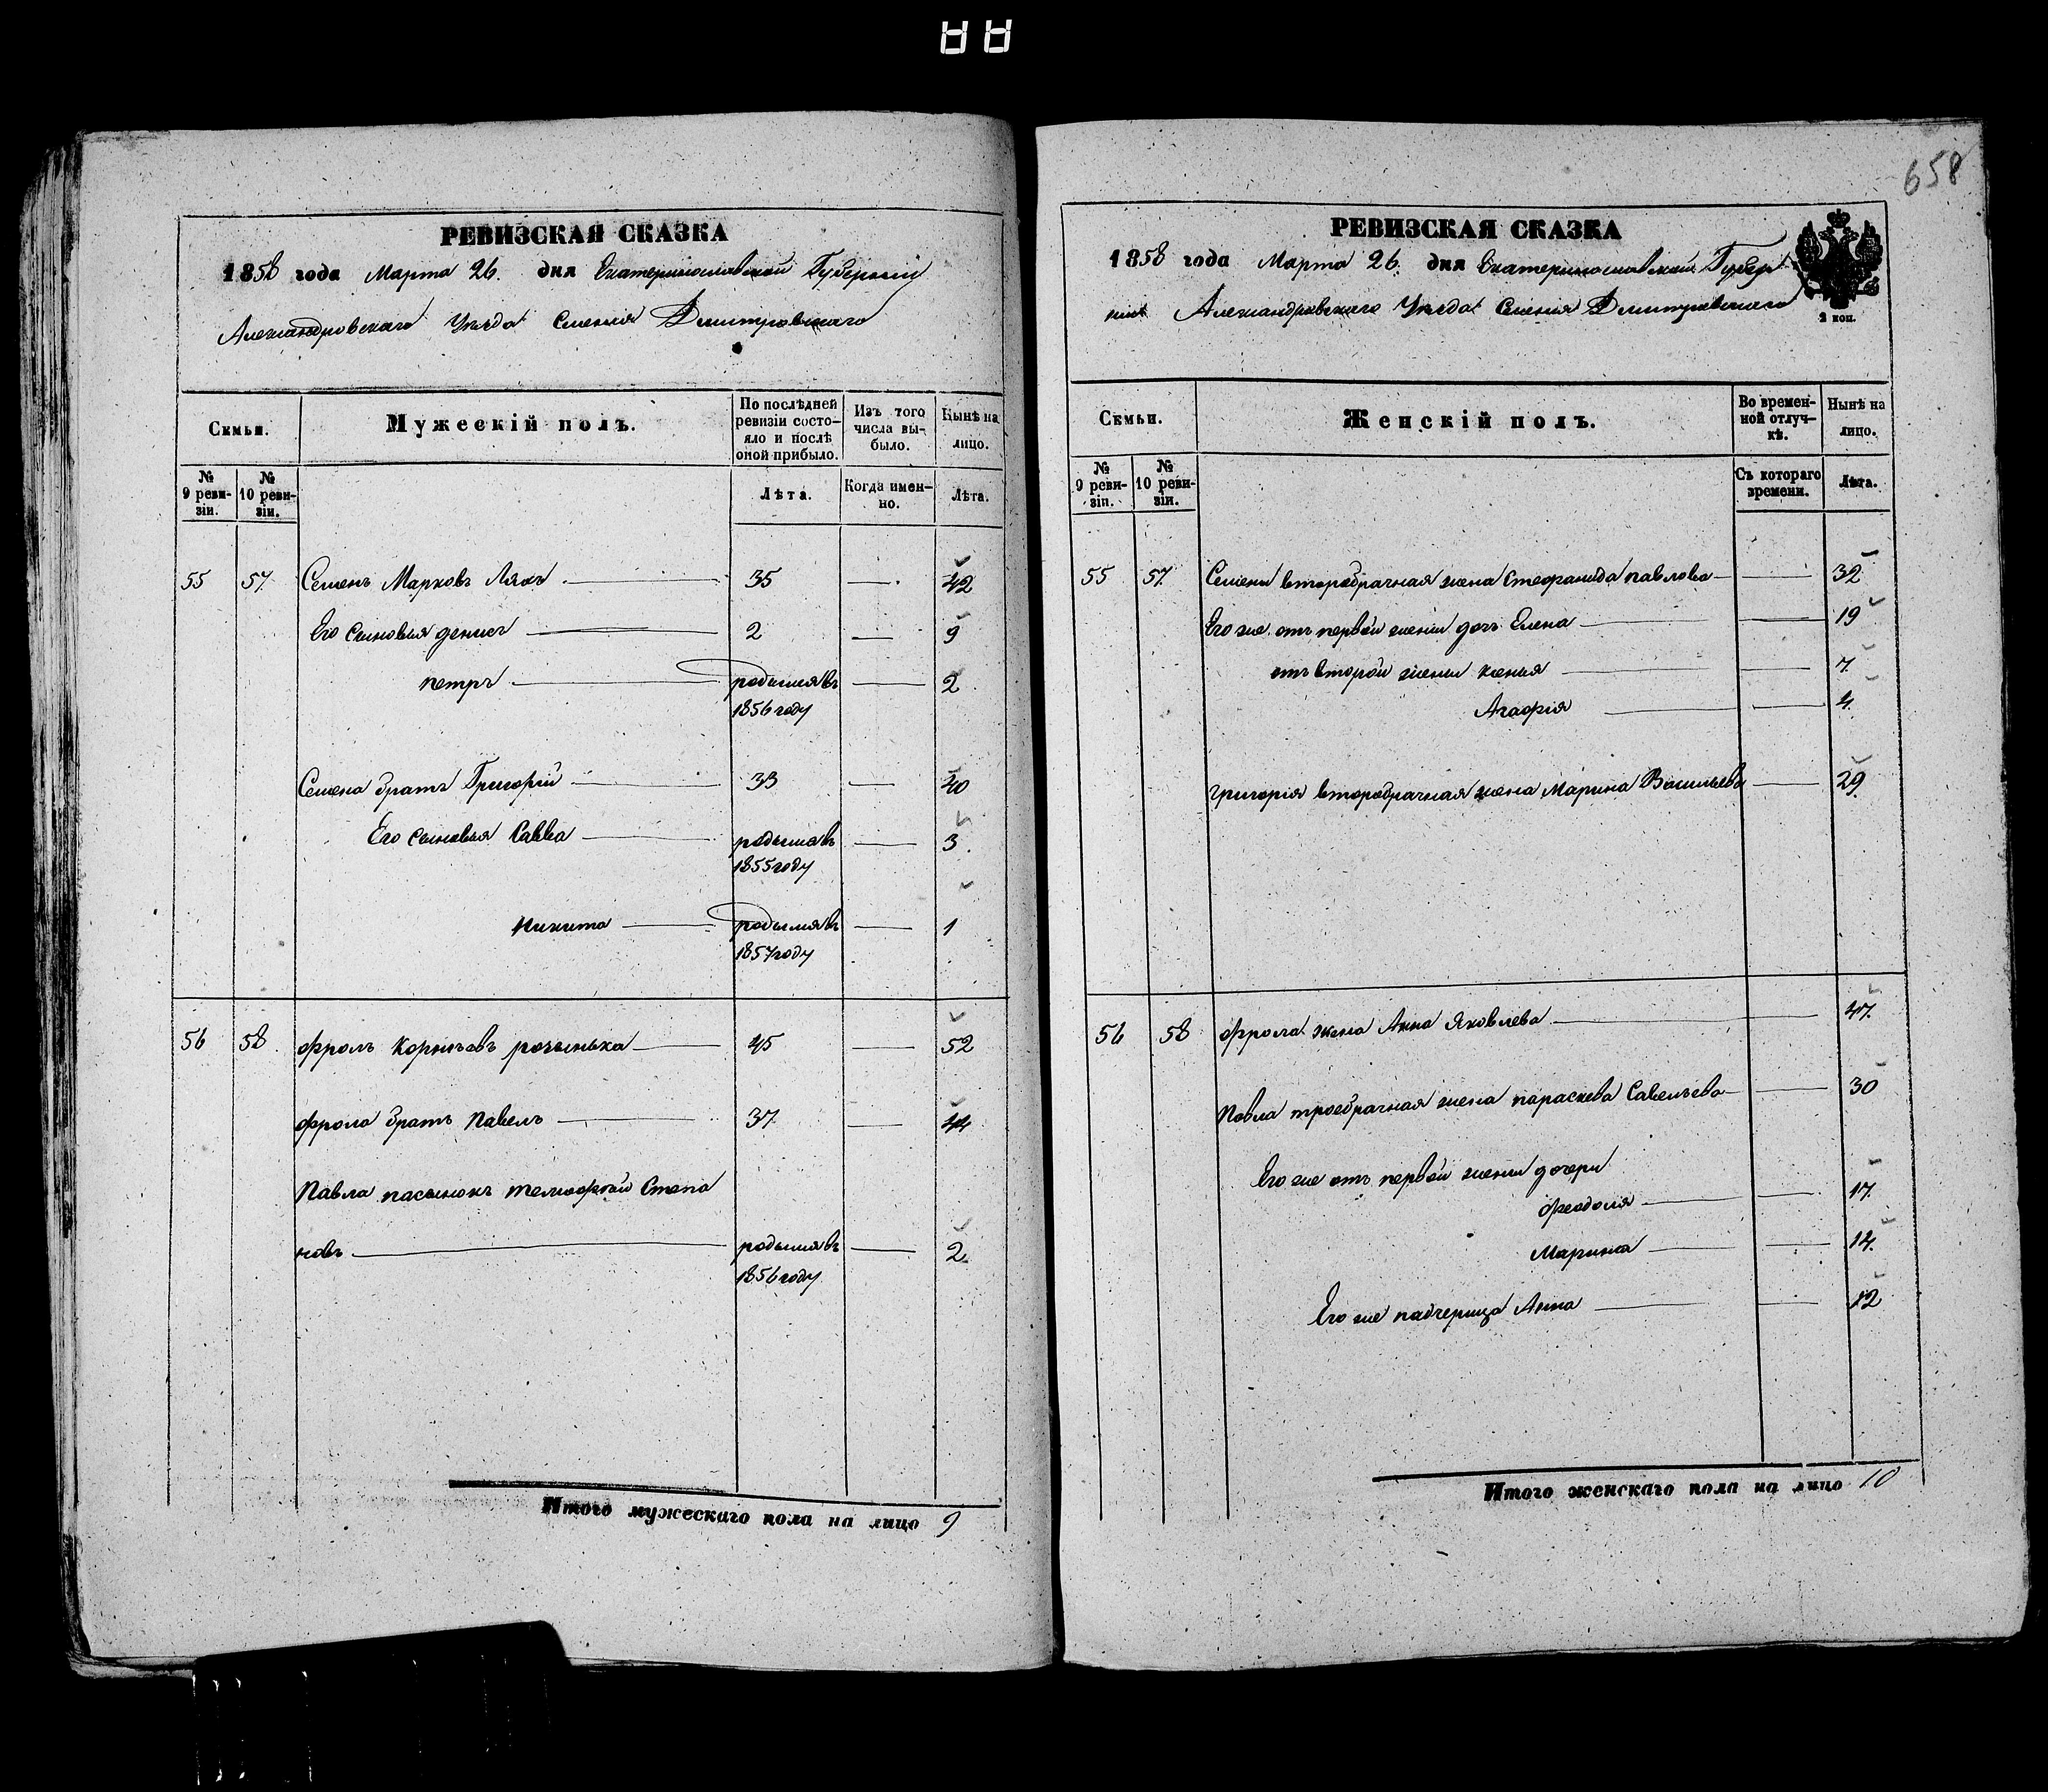 658
РЕВИЗСКАЯ СКАЗКА
1858 года Марта 26. дня Екатеринославской Губерніи
Александровскаго Уѣзда Селенія Дмитровскаго
Семьи.
Мужескій полъ.
По послѣдней ревизіи состояло и послѣ оной прибыло.
Изъ того числа выбыло.
Нынѣ на лицо.
№ 9 ревизіи.
№ 10 ревизіи.
Лѣта.
Когда именно.
Лѣта.
55 57 Семенъ Марковъ Ляхъ 35 42
Его сыновья денисъ 2 9
петръ родился въ 2
1856 году
Семена братъ Григорій 33 40
Его сыновья Савва родился въ 3
1855 году
Никита родился въ 1
1857 году
56 58 фролъ Корнѣевъ 45 52
фрола братъ Павелъ 37 44
Павла пасынокъ Степа
новъ родился въ 2
1856 году
Итого мужескаго пола на лицо 9
РЕВИЗСКАЯ СКАЗКА
1858 года Марта 26. дня Екатеринославской Губер
ніи Александровскаго Уѣзда Селенія Дмитровскаго
2 коп.
Семьи.
Женскій полъ.
Во временной отлучкѣ.
Нынѣ на лицо.
№ 9 ревизіи.
№ 10 ревизіи.
Съ котораго времени.
Лѣта.
55 57 Семена второбрачная жена Стефанида павлова 32
Его же отъ первой жены дочь Елена 19
отъ второй жены ксенья 7
Агафія 4
григорія второбрачная жена Марина Васильева 29
56 58 фрола жена Анна Яковлева 47
Павла троебрачная жена параскева Савельева 30
Его же отъ первой жены дочери
феодосія 17
Марина 14
Его же падчерица Анна 12
Итого женскаго пола на лицо 10